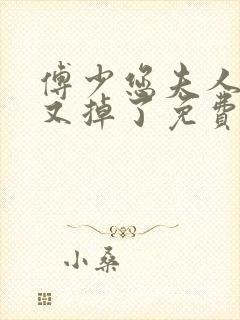 傅少您夫人
又掉了免费
小桑